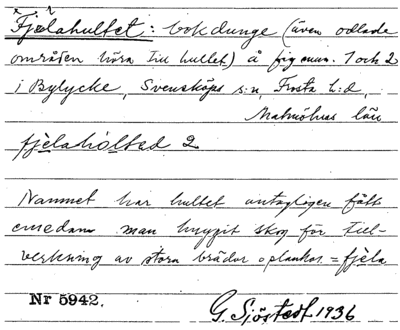 Fjælahultet: bokdunge (även odlade
områden höra till hultet) å fig.num. 1 och 2
i Bylycke, Svensköps s:n, Frosta h:d,
Malmöhus län
fjælahòltəd 2
Namnet har hultet antagligen fått
emedan man huggit skog för till-
verkning av stora brädor o plankor = fjæla
Nr 5942.
G. Sjöstedt 1936